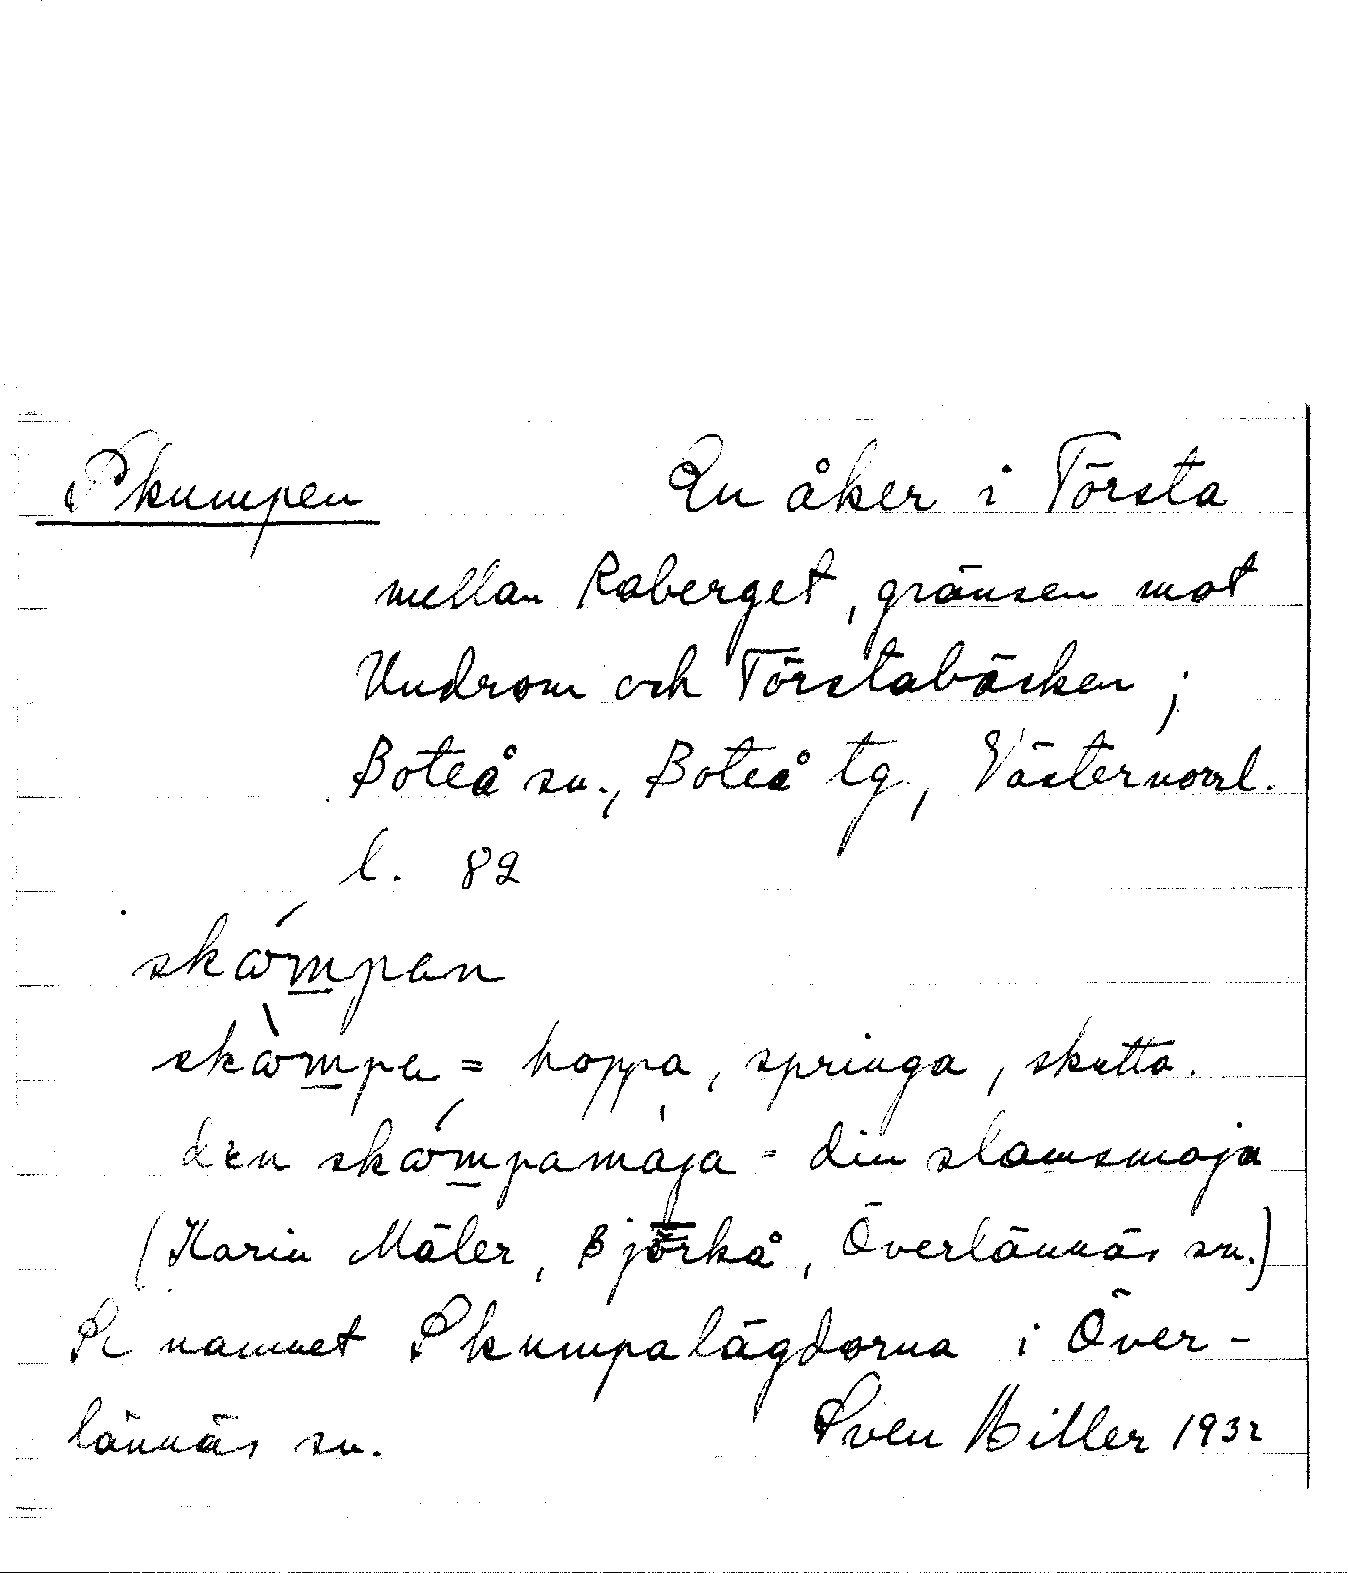 Skumpen En åker i Törsta
mellan Raberget, gränsen mot
Undrom och Törstabäcken;
Boteå sn., Boteå tg, Västernorrl.
l. 82
skómpan
skòmpa = hoppa, springa, skutta.
den skómpamaja - din slamsmaja
(Karin Mäler, Björkå, Överlännäs sn.)
Se namnet Skumpalägdorna i Över-
lännäs sn. Sven Hiller 1932